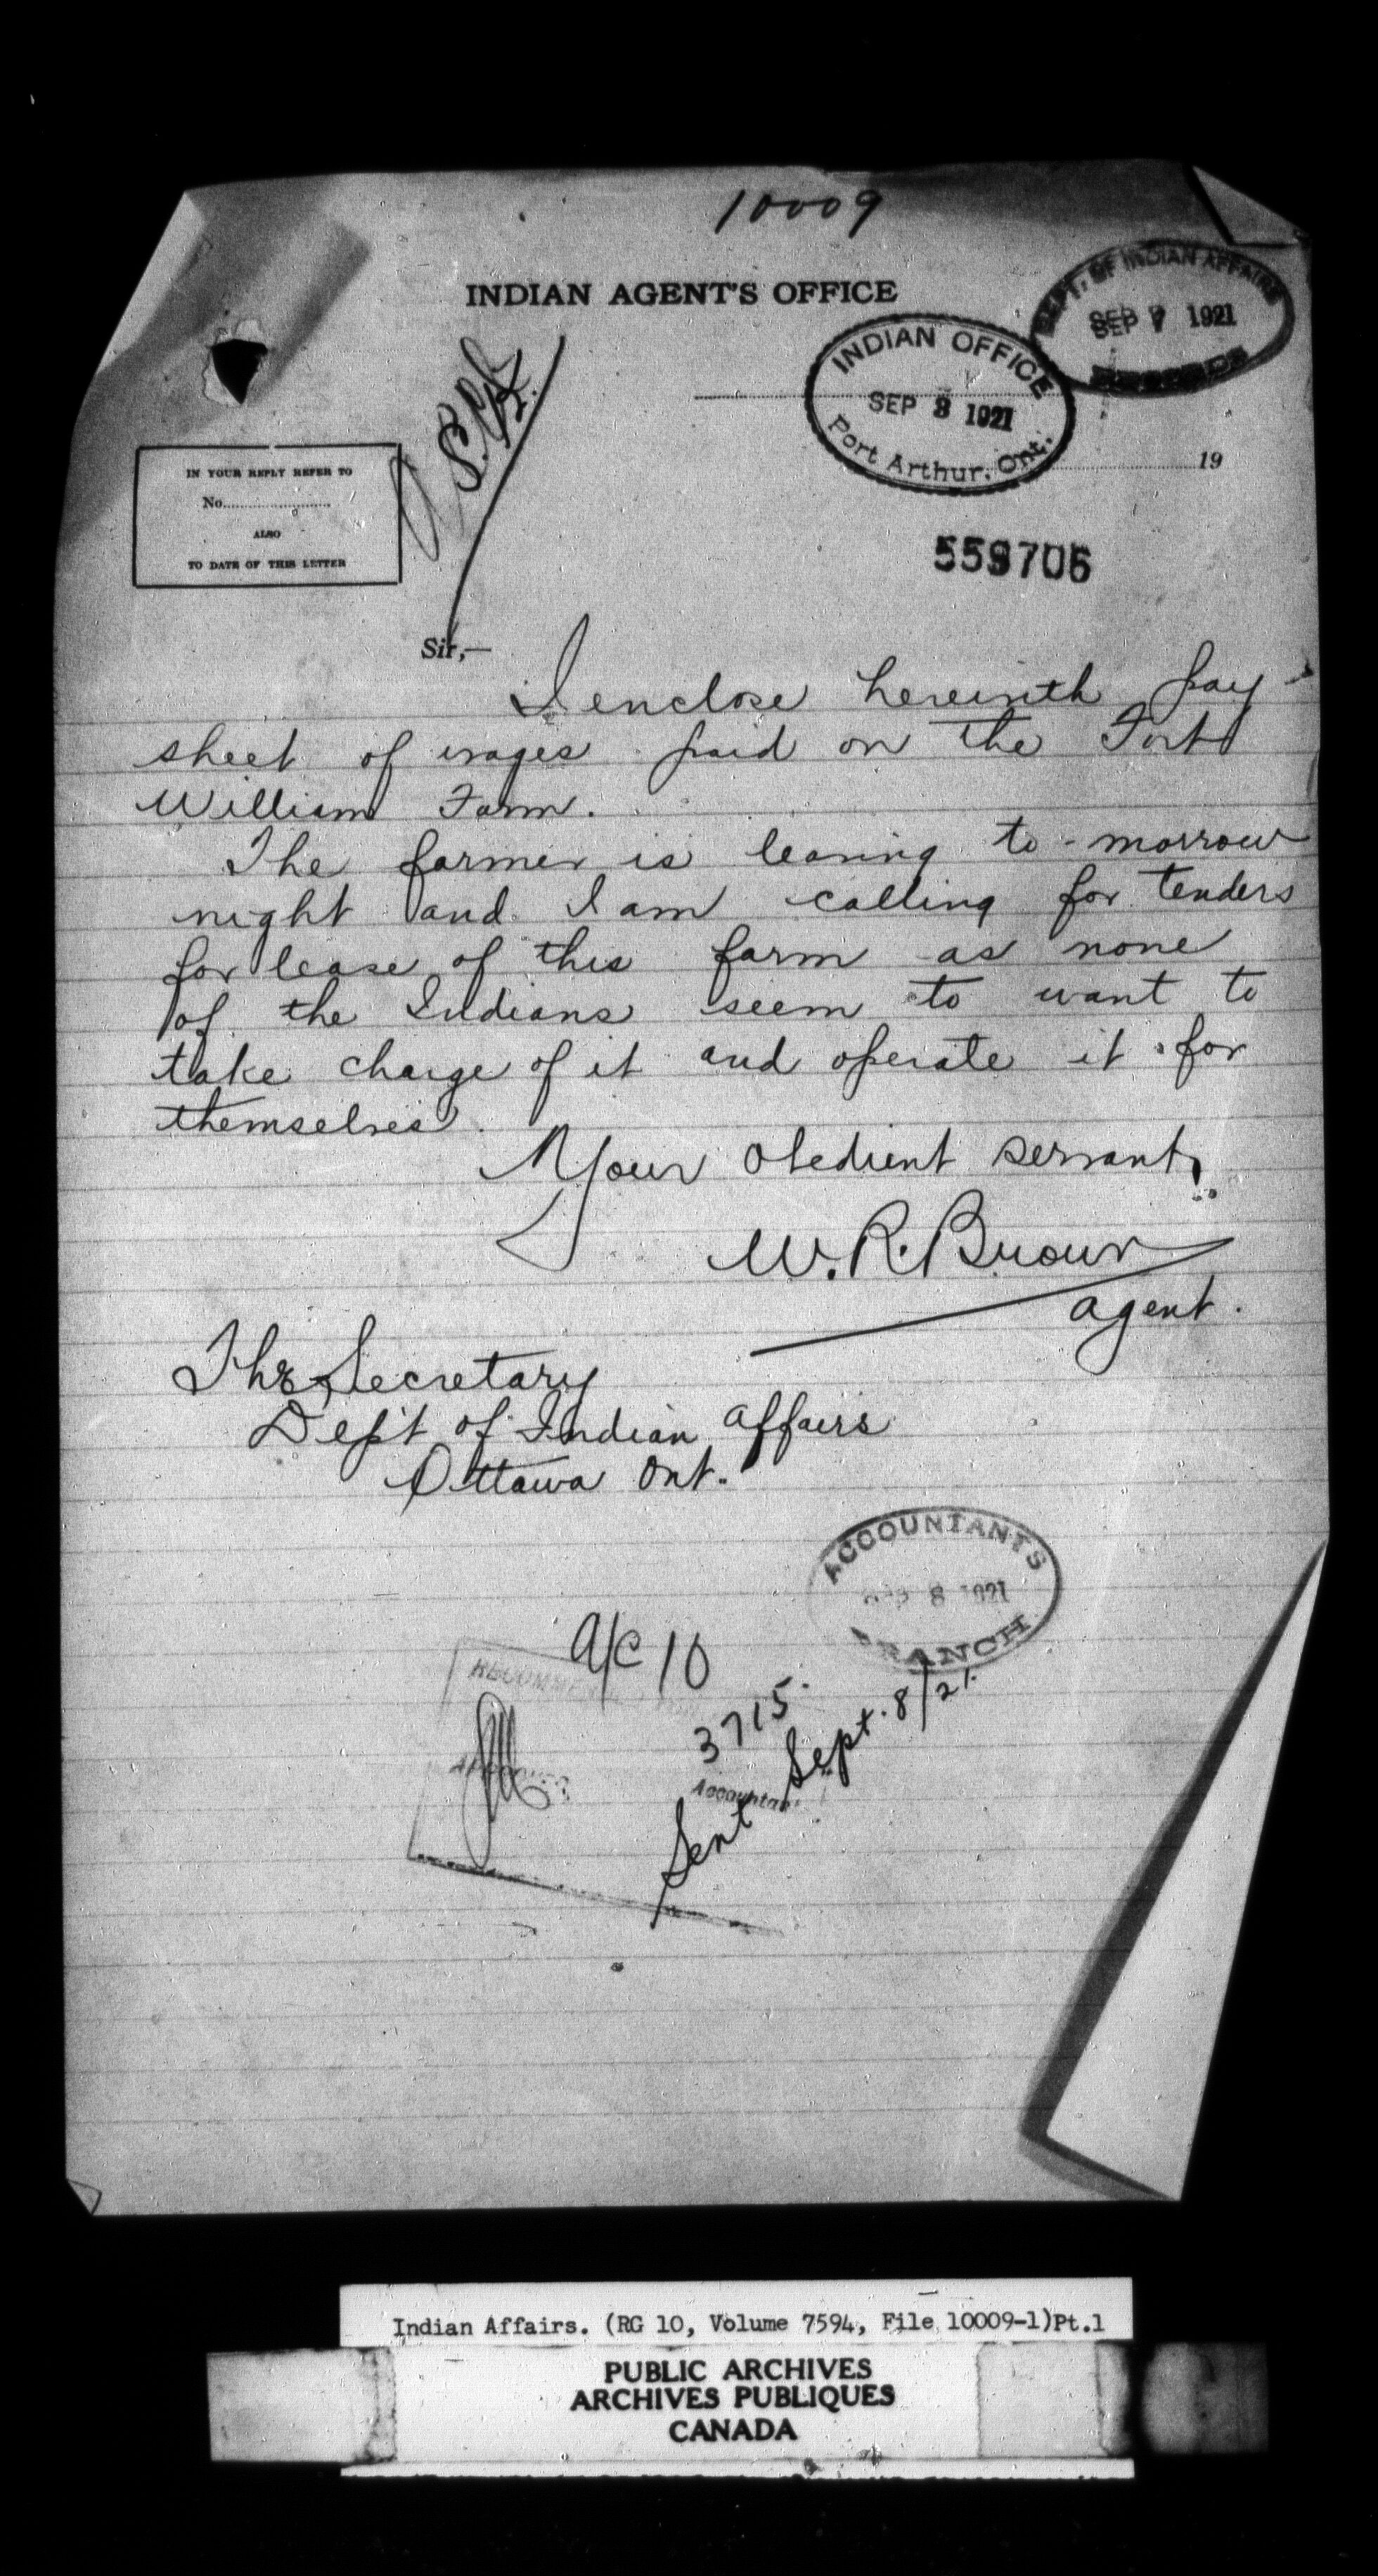 10009
INDIAN AGENT'S OFFICE
DEPT. OF INDIAN AFFAIRS
SEP 7 1921
INDIAN OFFICE
SEP 3 1921
Port Arthur. Ont.
19
IN YOUR REPLY REFER TO
No.
ALSO
TO DATE OF THIS LETTER
559706
Sir,—
I enclose herewith pay
sheet of wages paid on the Fort
William Farm.
The farmer is leaving to-morrow
night and I am calling for tenders
for lease of this farm as none
of the Indians seem to want to
take charge of it and operate it for
themselves.
Your obedient servant,
W. R. Brown
agent.
The Secretary
Dep't of Indian Affairs
Ottawa Ont.
ACCOUNTANTS
SEP 8 1921
BRANCH
a/c 10
3715.
Accountant
Sent Sept. 8/21.
Indian Affairs. (RG 10, Volume 7594, File 10009-1)Pt.1
PUBLIC ARCHIVES
ARCHIVES PUBLIQUES
CANADA